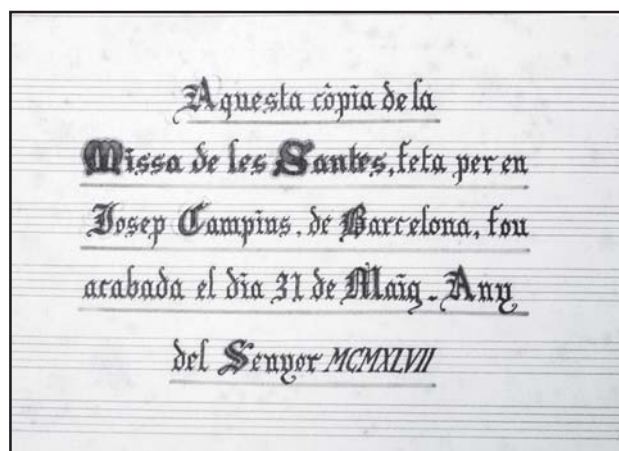 Aquesta còpia de la
Missa de les Santes, feta per en
Josep Campins, de Barcelona, fou
acabada el dia 31 de Maig - Any
del Senyor MCMXLVII